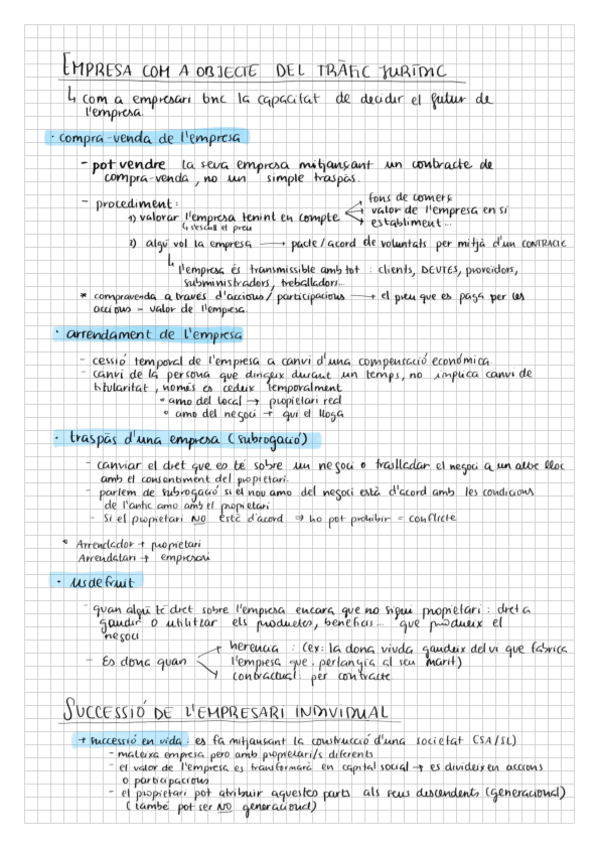 EMPRESA COM A OBJECTE DEL TRÀFIC JURÍDIC
↳ com a empresari tinc la capacitat de decidir el futur de
l'empresa.
· compra-venda de l'empresa
- pot vendre la seva empresa mitjançant un contracte de
compra-venda, no un simple traspàs.
- procediment:
fons de comerç
1) valorar l'empresa tenint en compte
valor de l'empresa en si
↳ s'escull el preu
establiment...
2) algú vol la empresa → pacte/acord de voluntats per mitjà d'un CONTRACTE
↳ l'empresa és transmissible amb tot : clients, DEUTES, proveïdors,
subministradors, treballadors...
* compravenda a través d'accions/participacions → el preu que es paga per les
accions = valor de l'empresa.
· arrendament de l'empresa
- cessió temporal de l'empresa a canvi d'una compensació econòmica.
- canvi de la persona que dirigeix durant un temps, no implica canvi de
titularitat, només es cedeix temporalment
• amo del local → propietari real
• amo del negoci → qui el lloga
· traspàs d'una empresa (subrogació)
- canviar el dret que es té sobre un negoci o traslladar el negoci a un altre lloc
amb el consentiment del propietari.
- parlem de subrogació si el nou amo del negoci està d'acord amb les condicions
de l'antic amo amb el propietari
- Si el propietari NO està d'acord ⇒ ho pot prohibir = conflicte
* Arrendador → propietari
Arrendatari → empresari
· usdefruit
- quan algú té dret sobre l'empresa encara que no sigui propietari : dret a
gaudir o utilitzar els productes, beneficis... que produeix el
negoci
herència : (ex: la dona viuda gaudeix del vi que fabrica
- Es dona quan
l'empresa que pertanyia al seu marit)
contractual: per contracte
SUCCESSIÓ DE L'EMPRESARI INDIVIDUAL
→ successió en vida : es fa mitjansant la construcció d'una societat (SA/SL)
- mateixa empresa pero amb propietari/s diferents
- el valor de l'empresa es transformarà en capital social → es divideixen accions
o participacions
- el propietari pot atribuir aquestes parts als seus descendents (generacional)
(també pot ser NO generacional)